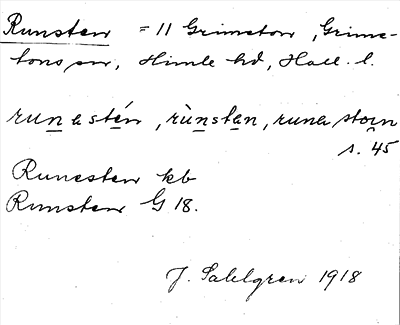 Runsten = 11 Grimeton, Grime-
tons sn, Himle hd, Hall. l.
runastén, rùnstan, runa stɑin
s. 45
Runesten kb
Runsten G 18.
J. Sahlgren 1918